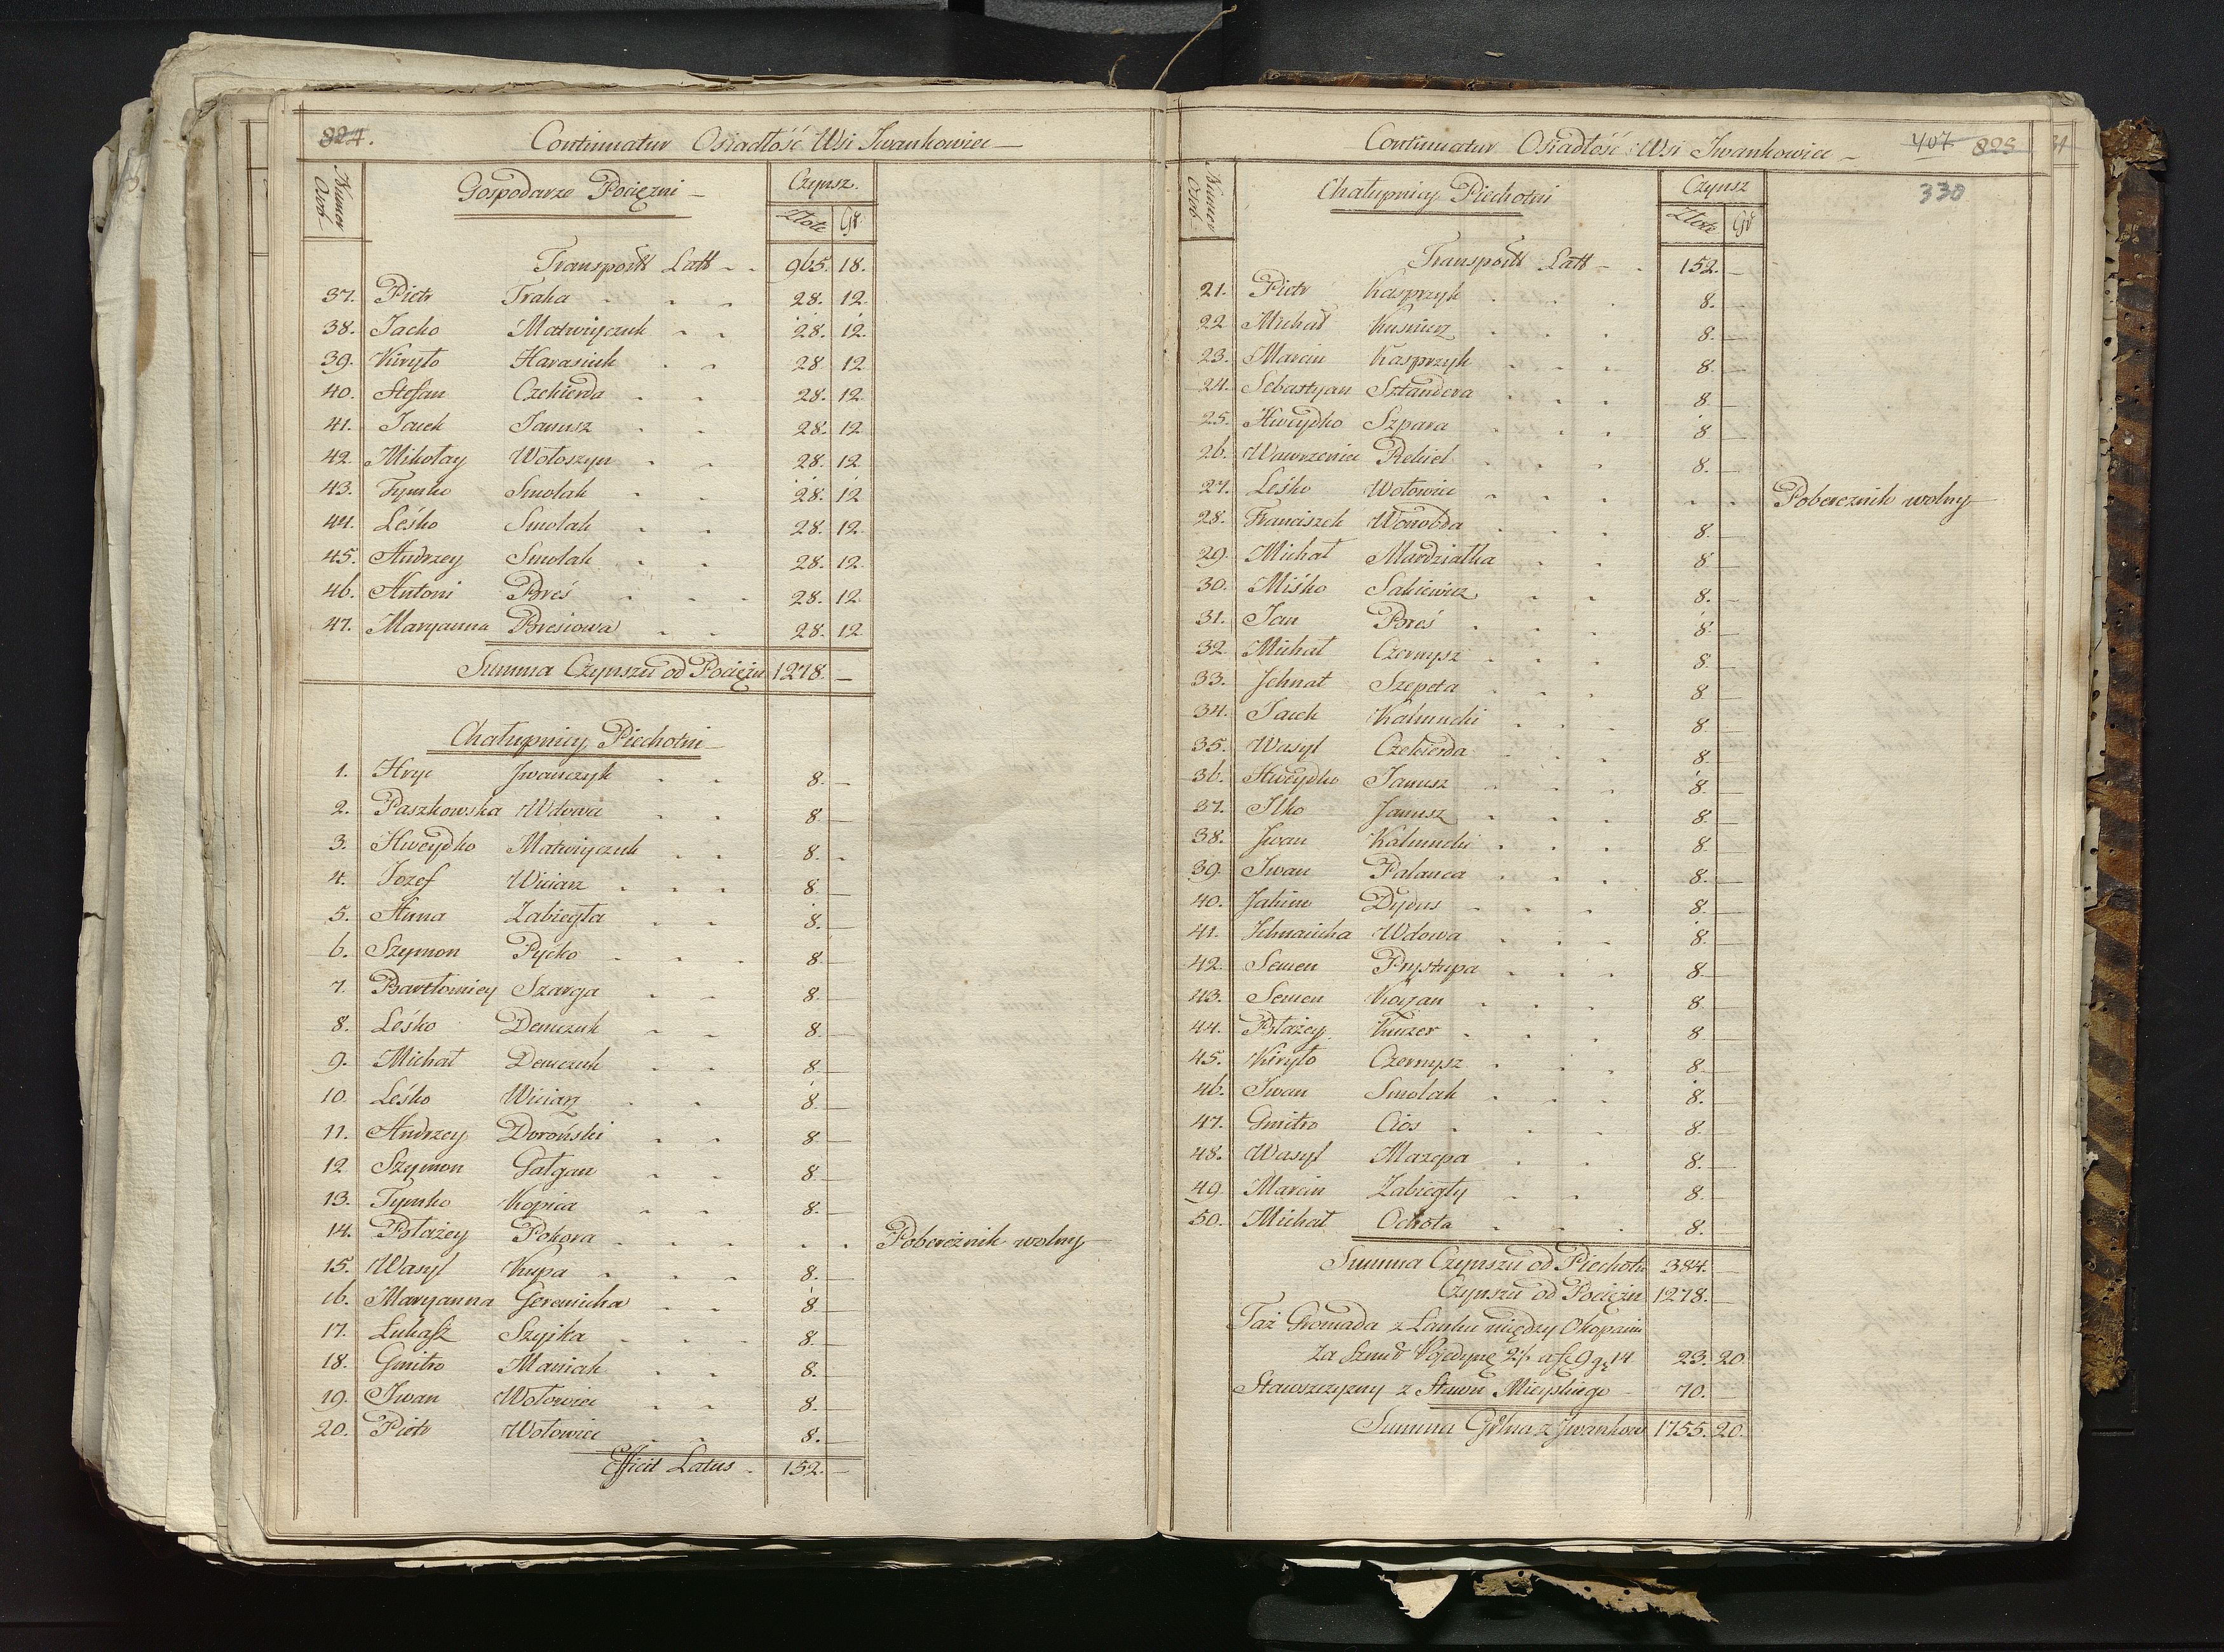 824.
Continuatur Osiadłość Wsi Iwankowiec
Numer Osob
Gospodarze Pociężni
Czynsz.
Złote Gr
Transportt Latt 965. 18.
37. Pietr Traka 28. 12.
38. Jacko Matwiyczuk 28. 12.
39. Kiryło Harasiuk 28. 12
40. Stefan Czekierda 28. 12
41. Jacek Janusz 28. 12
42. Mikołay Wołoszyn 28. 12
43. Tymko Smolak 28. 12
44. Leśko Smolak 28. 12.
45. Andrzey Smolak 28. 12
46. Antoni Breś 28. 12
47. Maryanna Bresiowa 28. 12
Summa Czynszu od Pociężn 1278. —
Chałupnicy Piechotni
1. Hryc Jwanczyk 8. —
2. Paszkowska Wdowa 8 —
3. Hweydko Matwiyczuk 8. -
4. Jozef Wiciarz 8 —
5. Anna Zabiegła 8. —
6. Szymon Pycko 8. —
7. Bartłomiey Szarga 8. —
8. Leśko Demczuk 8. —
9. Michał Demczuk 8. —
10. Leśko Wiciarz 8. —
11. Andrzey Doroński 8 —
12 Szymon Gałgan 8. —
13. Tymko Kopica 8. —
14. Błażey Pokora Pobereżnik wolny
15. Wasyl Kupa 8. —
16. Maryanna Geremicha 8 —
17. Łukasz Szyika 8. —
18. Gmitro Maniak 8. —
19. Iwan Wołowiec 8. —
20. Pietr Wołowiec 8. —
Efficit Latus 152. —
Continuatur Osiadłość Wsi Iwankowiec
407 825
330
Numer Osob
Chałupnicy Piechotni
Czynsz
Złote Gr
Transportt Latt 152. —
21. Pietr Kasprzyk 8. —
22 Michał Kusnierz 8. —
23. Marcin Kasprzyk 8. —
24. Sebastyan Sztandera 8. —
25. Hweydko Szpara 8 —
26. Wawrzeniec Rekiel 8. —
27. Leśko Wołowiec Pobereznik wolny
28. Franciszek Worobda 8. —
29. Michał Mardziałka 8 —
30. Miśko Sakiewicz 8. —
31. Jan Breś 8. —
32. Michał Czernysz 8. —
33. Jehnat Szepeta 8. —
34. Jacek Kalmucki 8. —
35. Wasyl Czekierda 8. —
36. Hweydko Janusz 8. —
37. Ilko Janusz 8. —
38. Jwan Kalmucki 8. —
39. Iwan Palanca 8. —
40. Jakim Dydus 8. —
41. Jehnaicha Wdowa 8. —
42. Semen Prystupa 8. —
43. Semen Kożan 8. —
44. Błażey Kuczer 8. —
45. Kiryło Czernysz 8. —
46. Iwan Smolak 8. —
47. Gmitro Cios 8. —
48. Wasyl Mazepa 8. —
49. Marcin Zabiegły 8. —
50. Michał Ochota 8. —
Summa Czynszu od Piechotn 384. —
Czynszu od Pociężn 1278. —
Taż Gromada z Łanku między Okopami
za Sznur Pojedynę 2½ a f 9 g 14 23. 20.
Stawszczyzny z Stawu Mieyskiego 70. —
Summa Grlna z Jwankow 1755. 20.